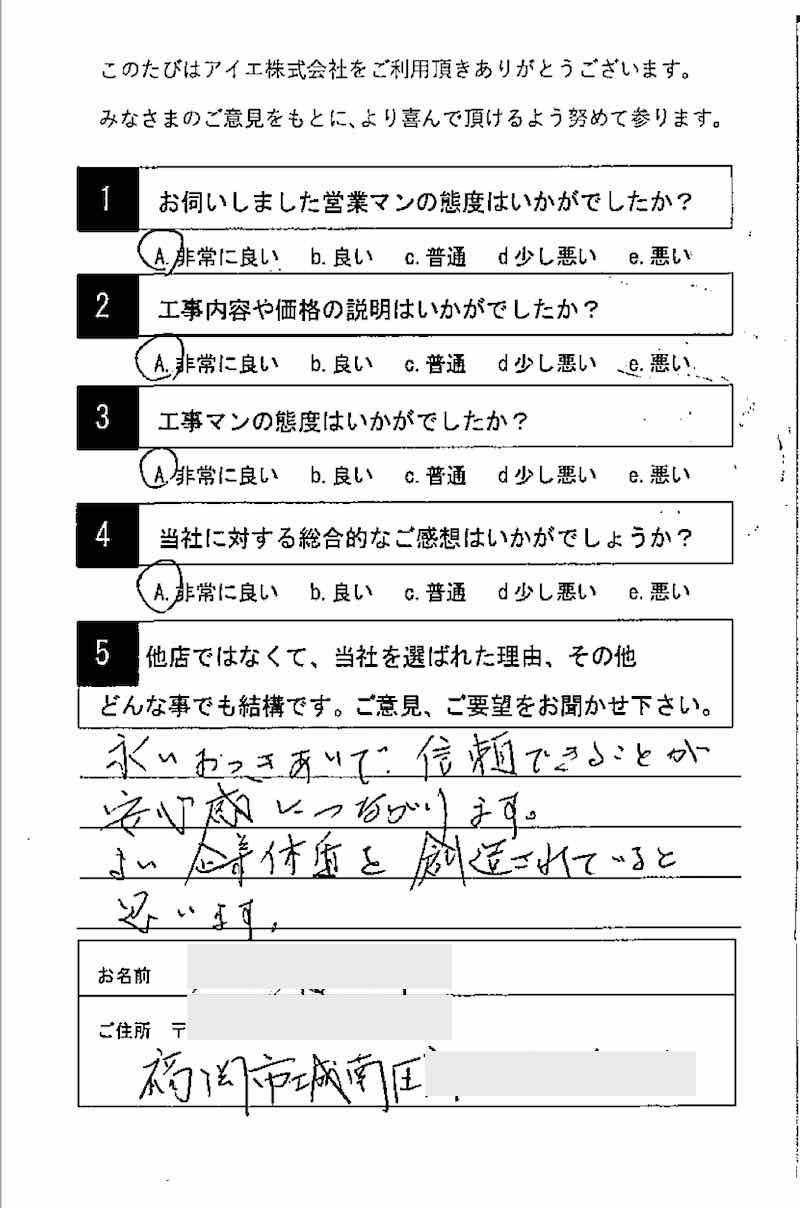 このたびはアイエ株式会社をご利用頂きありがとうございます。
みなさまのご意見をもとに、より喜んで頂けるよう努めて参ります。
1 お伺いしました営業マンの態度はいかがでしたか？
A.非常に良い b.良い c.普通 d少し悪い e.悪い
2 工事内容や価格の説明はいかがでしたか？
A.非常に良い b.良い c.普通 d少し悪い e.悪い
3 工事マンの態度はいかがでしたか？
A.非常に良い b.良い c.普通 d少し悪い e.悪い
4 当社に対する総合的なご感想はいかがでしょうか？
A.非常に良い b.良い c.普通 d少し悪い e.悪い
5 他店ではなくて、当社を選ばれた理由、その他
どんな事でも結構です。ご意見、ご要望をお聞かせ下さい。
永いおつきあいで信頼できることが
安心感につながります。
よい企業体質を創造されていると
思います。
お名前
ご住所 〒
福岡市城南区